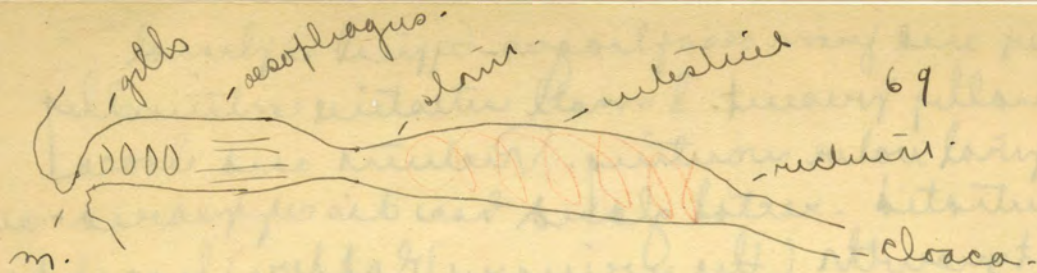 gills
oesophagus.
stom.
intestine
69
rectum.
m.
cloaca.